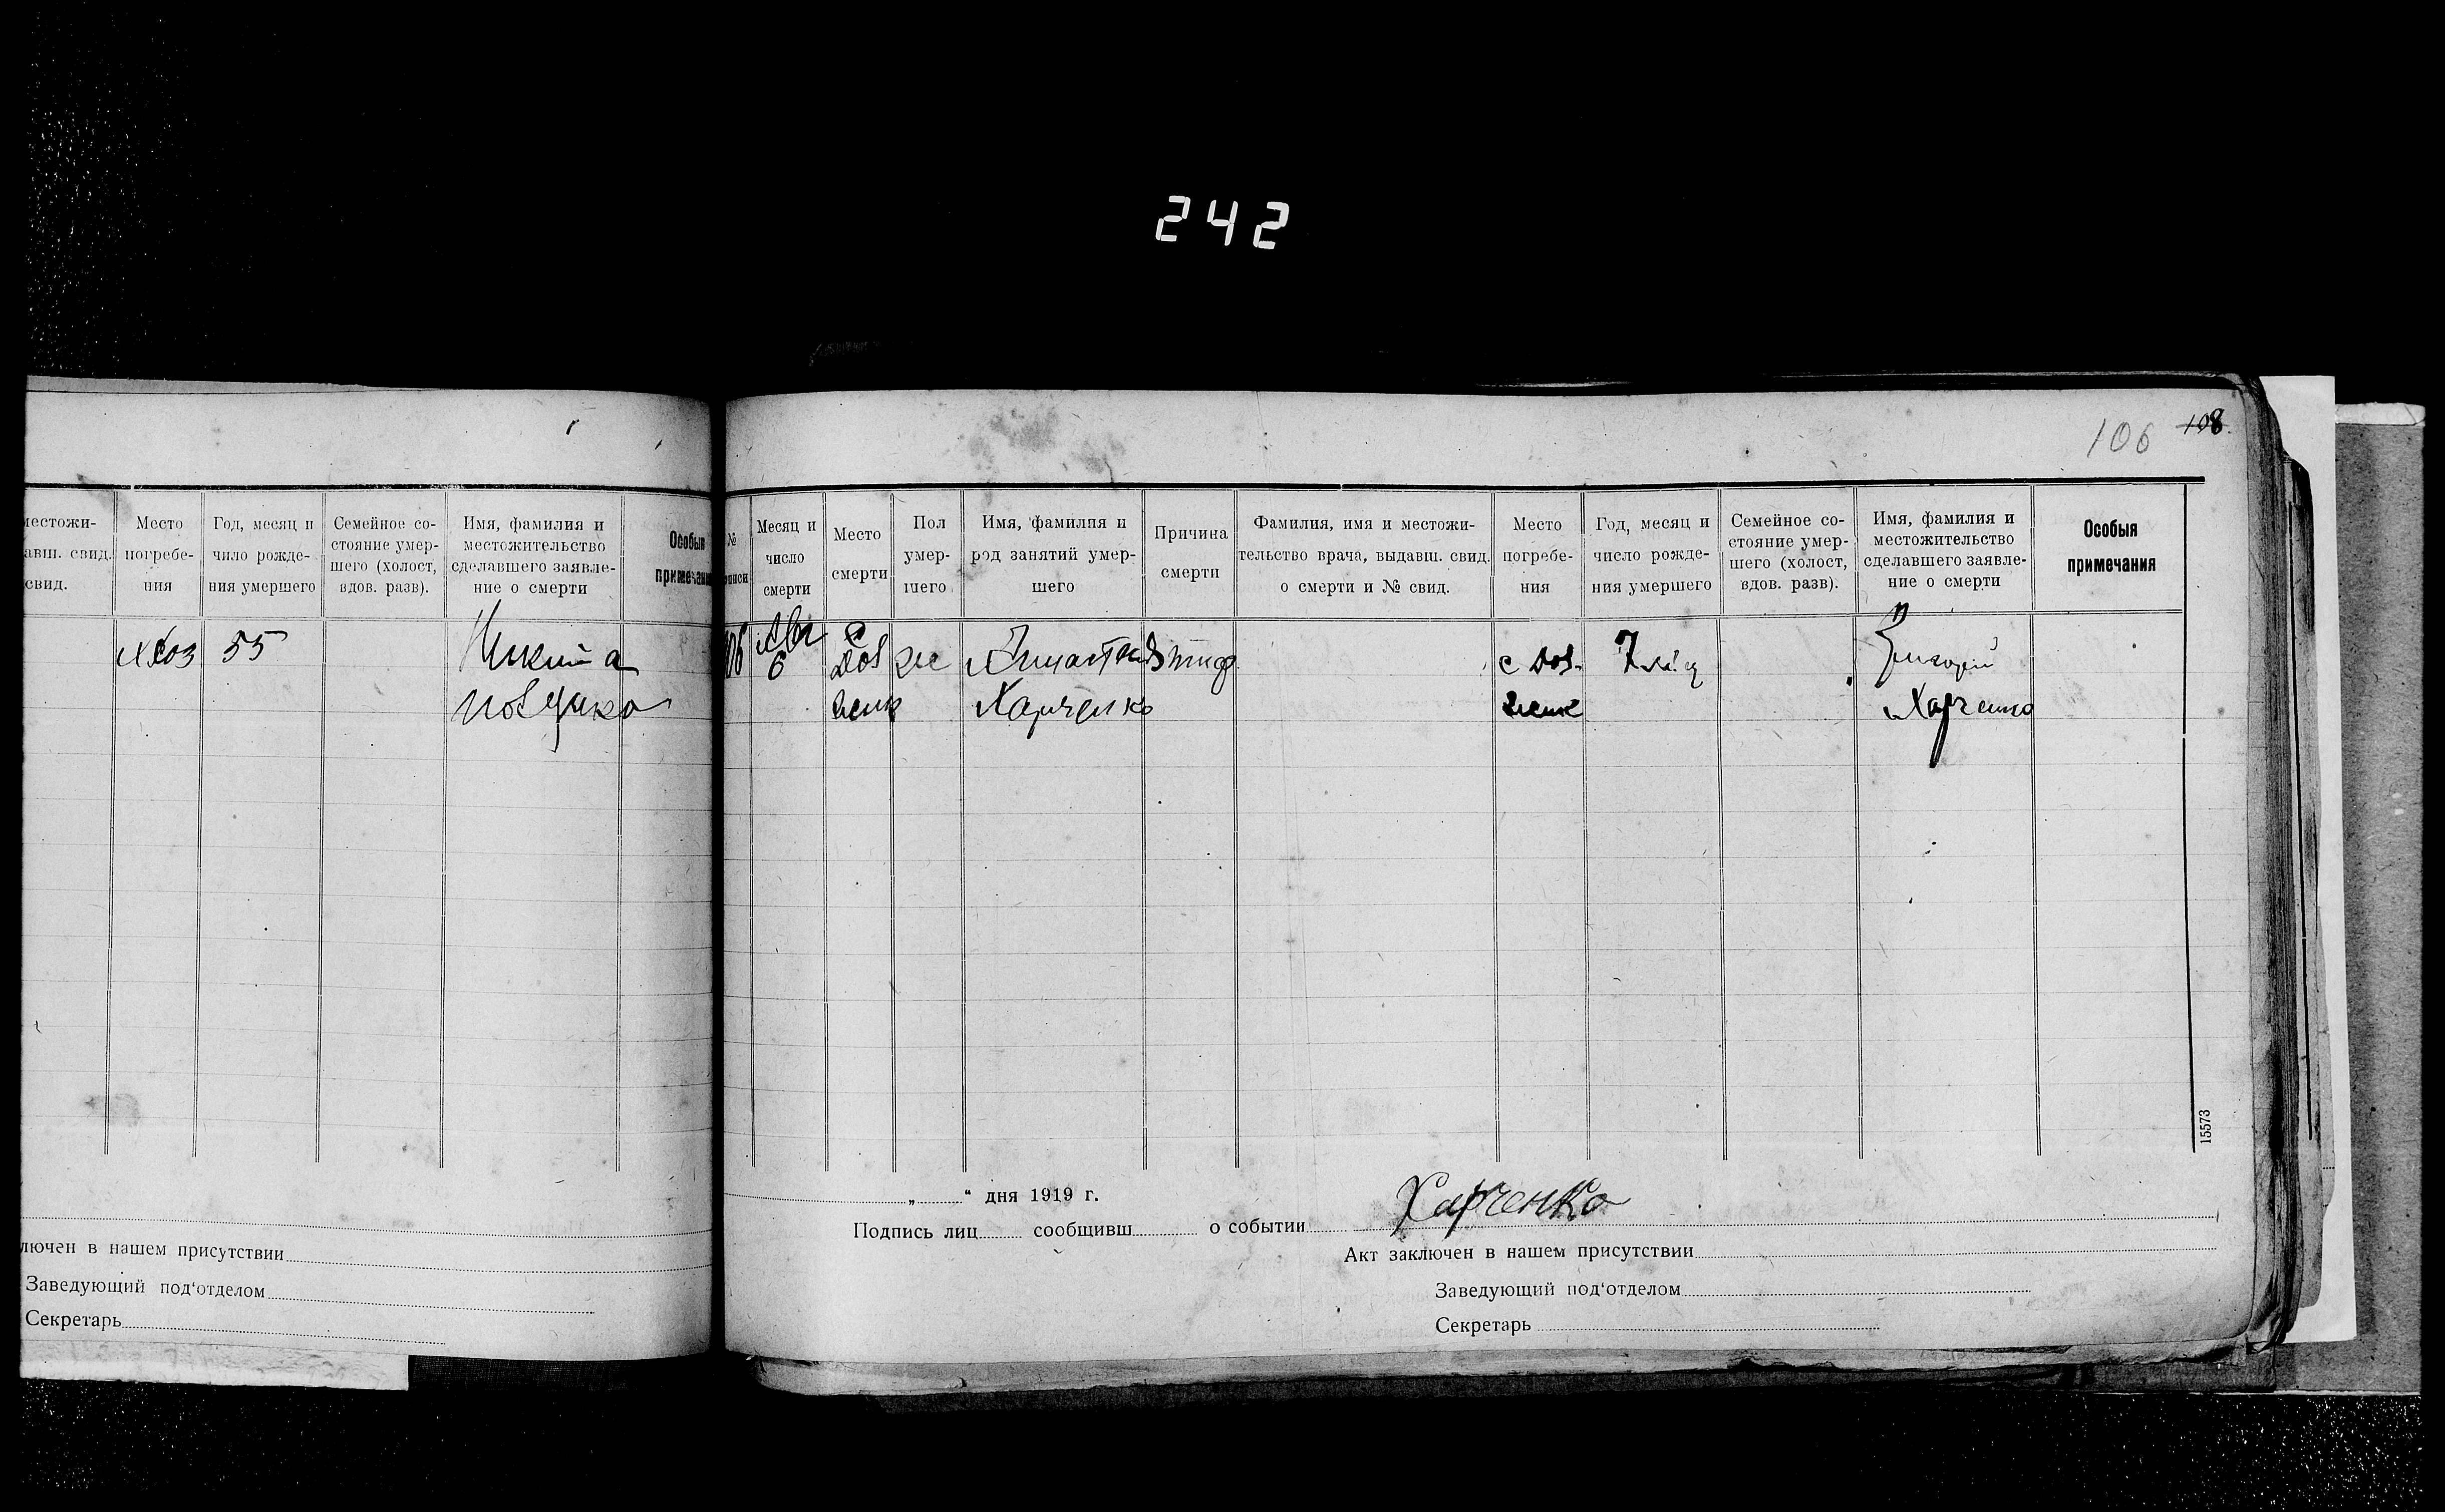 242
106 108.
местожи-
авш. свид.
свид.
Место
погребе-
ния
Год, месяц и
чило рожде-
ния умершего
Семейное со-
стояние умер-
шего (холост,
вдов. разв).
Имя, фамилия и
местожительство
сделавшего заявле-
ние о смерти
Особыя
примечани
55
Никита
лючен в нашем присутствии
Заведующий под‘отделом
Секретарь
№
писи
Месяц и
число
смерти
Место
смерти
Пол
умер-
шего
Имя, фамилия и
род занятий умер-
шего
Причина
смерти
Фамилия, имя и местожи-
тельство врача, выдавш. свид.
о смерти и № свид.
Место
погребе-
ния
Год, месяц и
число рожде-
ния умершего
Семейное со-
стояние умер-
шего (холост,
вдов. разв).
Имя, фамилия и
местожительство
сделавшего заявле-
ние о смерти
Особыя
примечания
106
Авг
6
же
Харченко
тиф
7
Харченко
15573
„ “ дня 1919 г.
Подпись лиц сообщивш о событии Харченко
Акт заключен в нашем присутствии
Заведующий под‘отделом
Секретарь